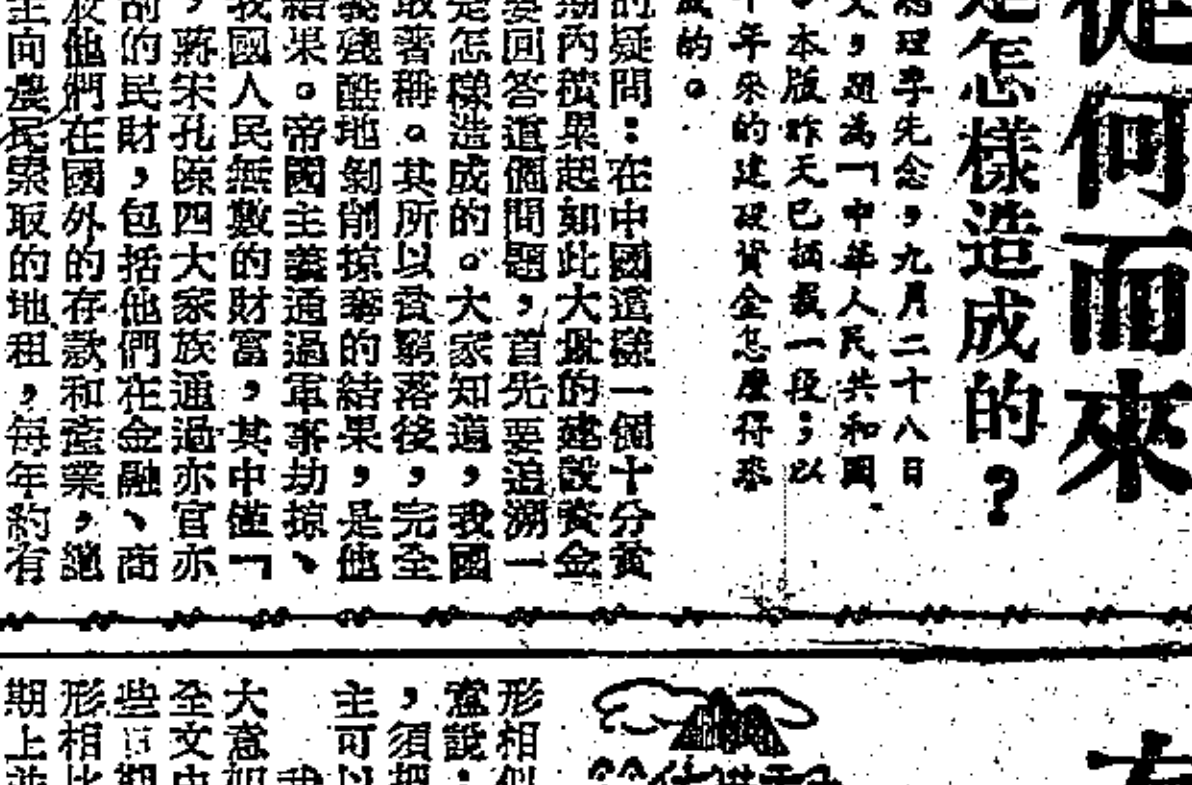 從何而來
是怎樣造成的？
總理李先念，九月二十八日
文，題為「中華人民共和國
。本版昨天已摘載一段；以
十年來的建設資金怎麼得來
成的。
的疑問：在中國這樣一個十分貧
期內積累起如此大量的建設資金
要回答這個問題，首先要追溯一
是怎樣造成的。大家知道，我國
著稱。其所以貧窮落後，完全
義殘酷地剝削掠奪的結果，是他
結果。帝國主義通過軍事劫掠、
我國人民無數的財富，其中僅「
，蔣宋孔陳四大家族通過亦官亦
的民財，包括他們在金融、商
他們在國外的存款和產業，總
主向農民索取的地租，每年約有
形相似
意說：
，須把
主可以
大意如
全文中
些日期
形相比
期上並